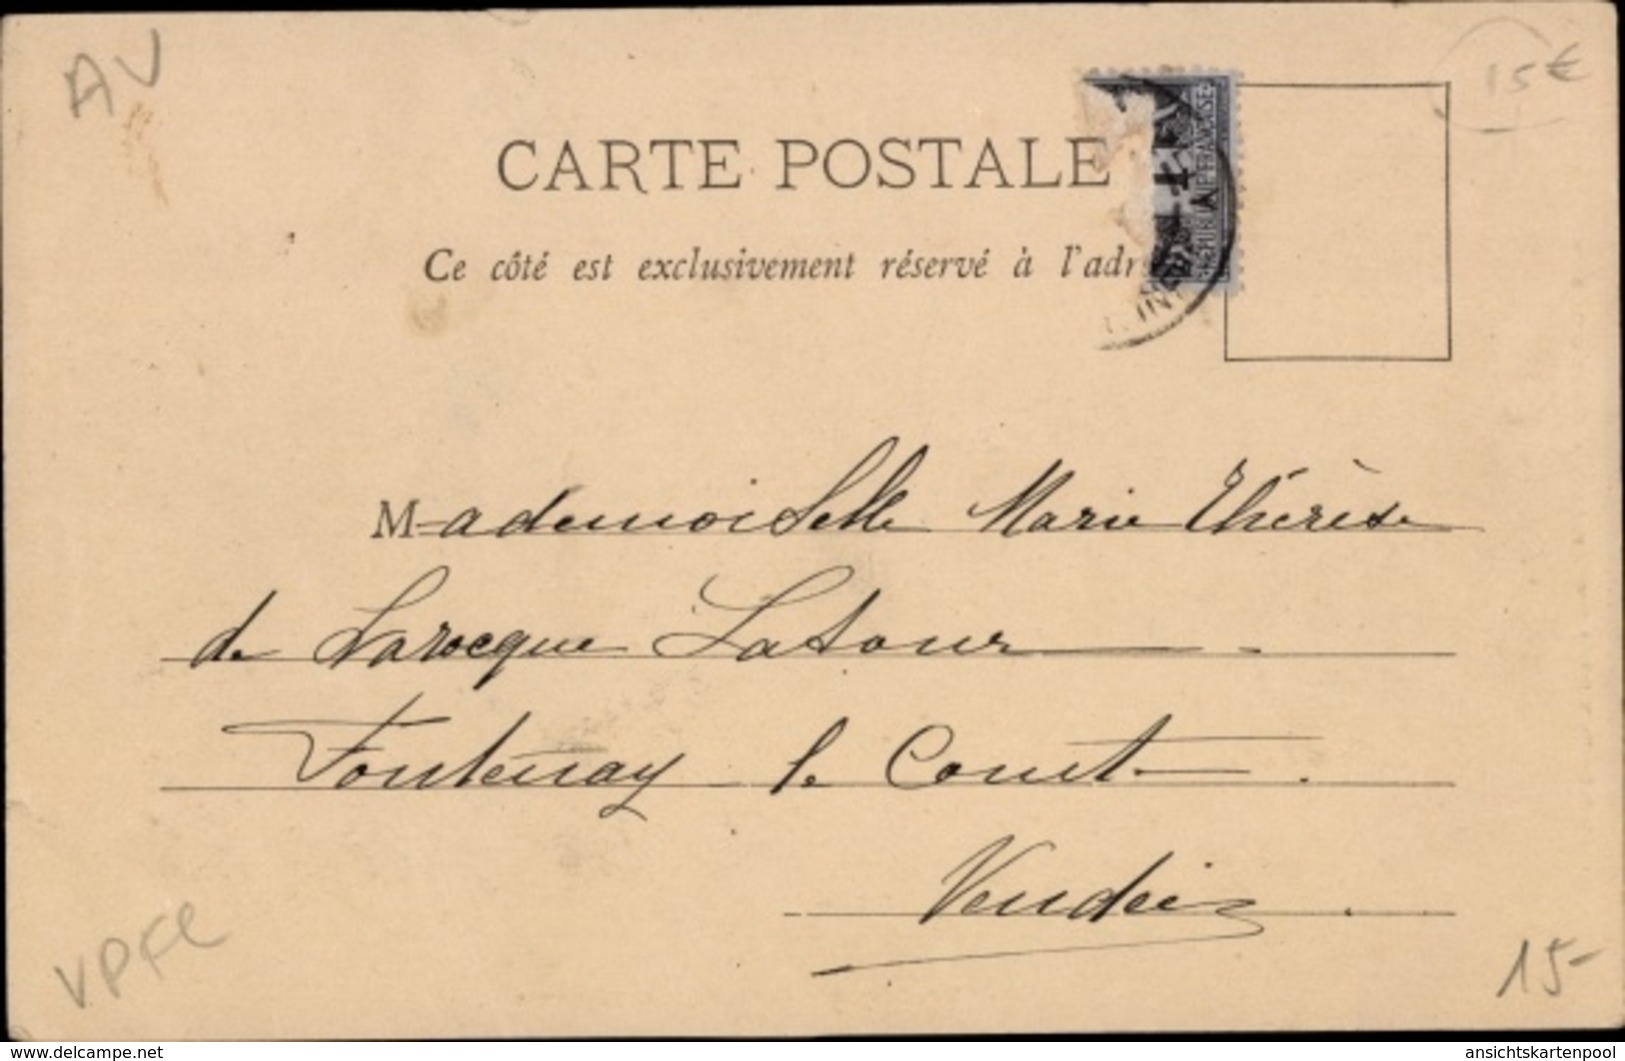 AV
15€
CARTE POSTALE
Ce côté est exclusivement réservé à l'adr
Mademoiselle Marie Thérèse
de Larocque Latour
Fontenay le Comte
Vendée
VPFL
15-
www.delcampe.net
ansichtskartenpool